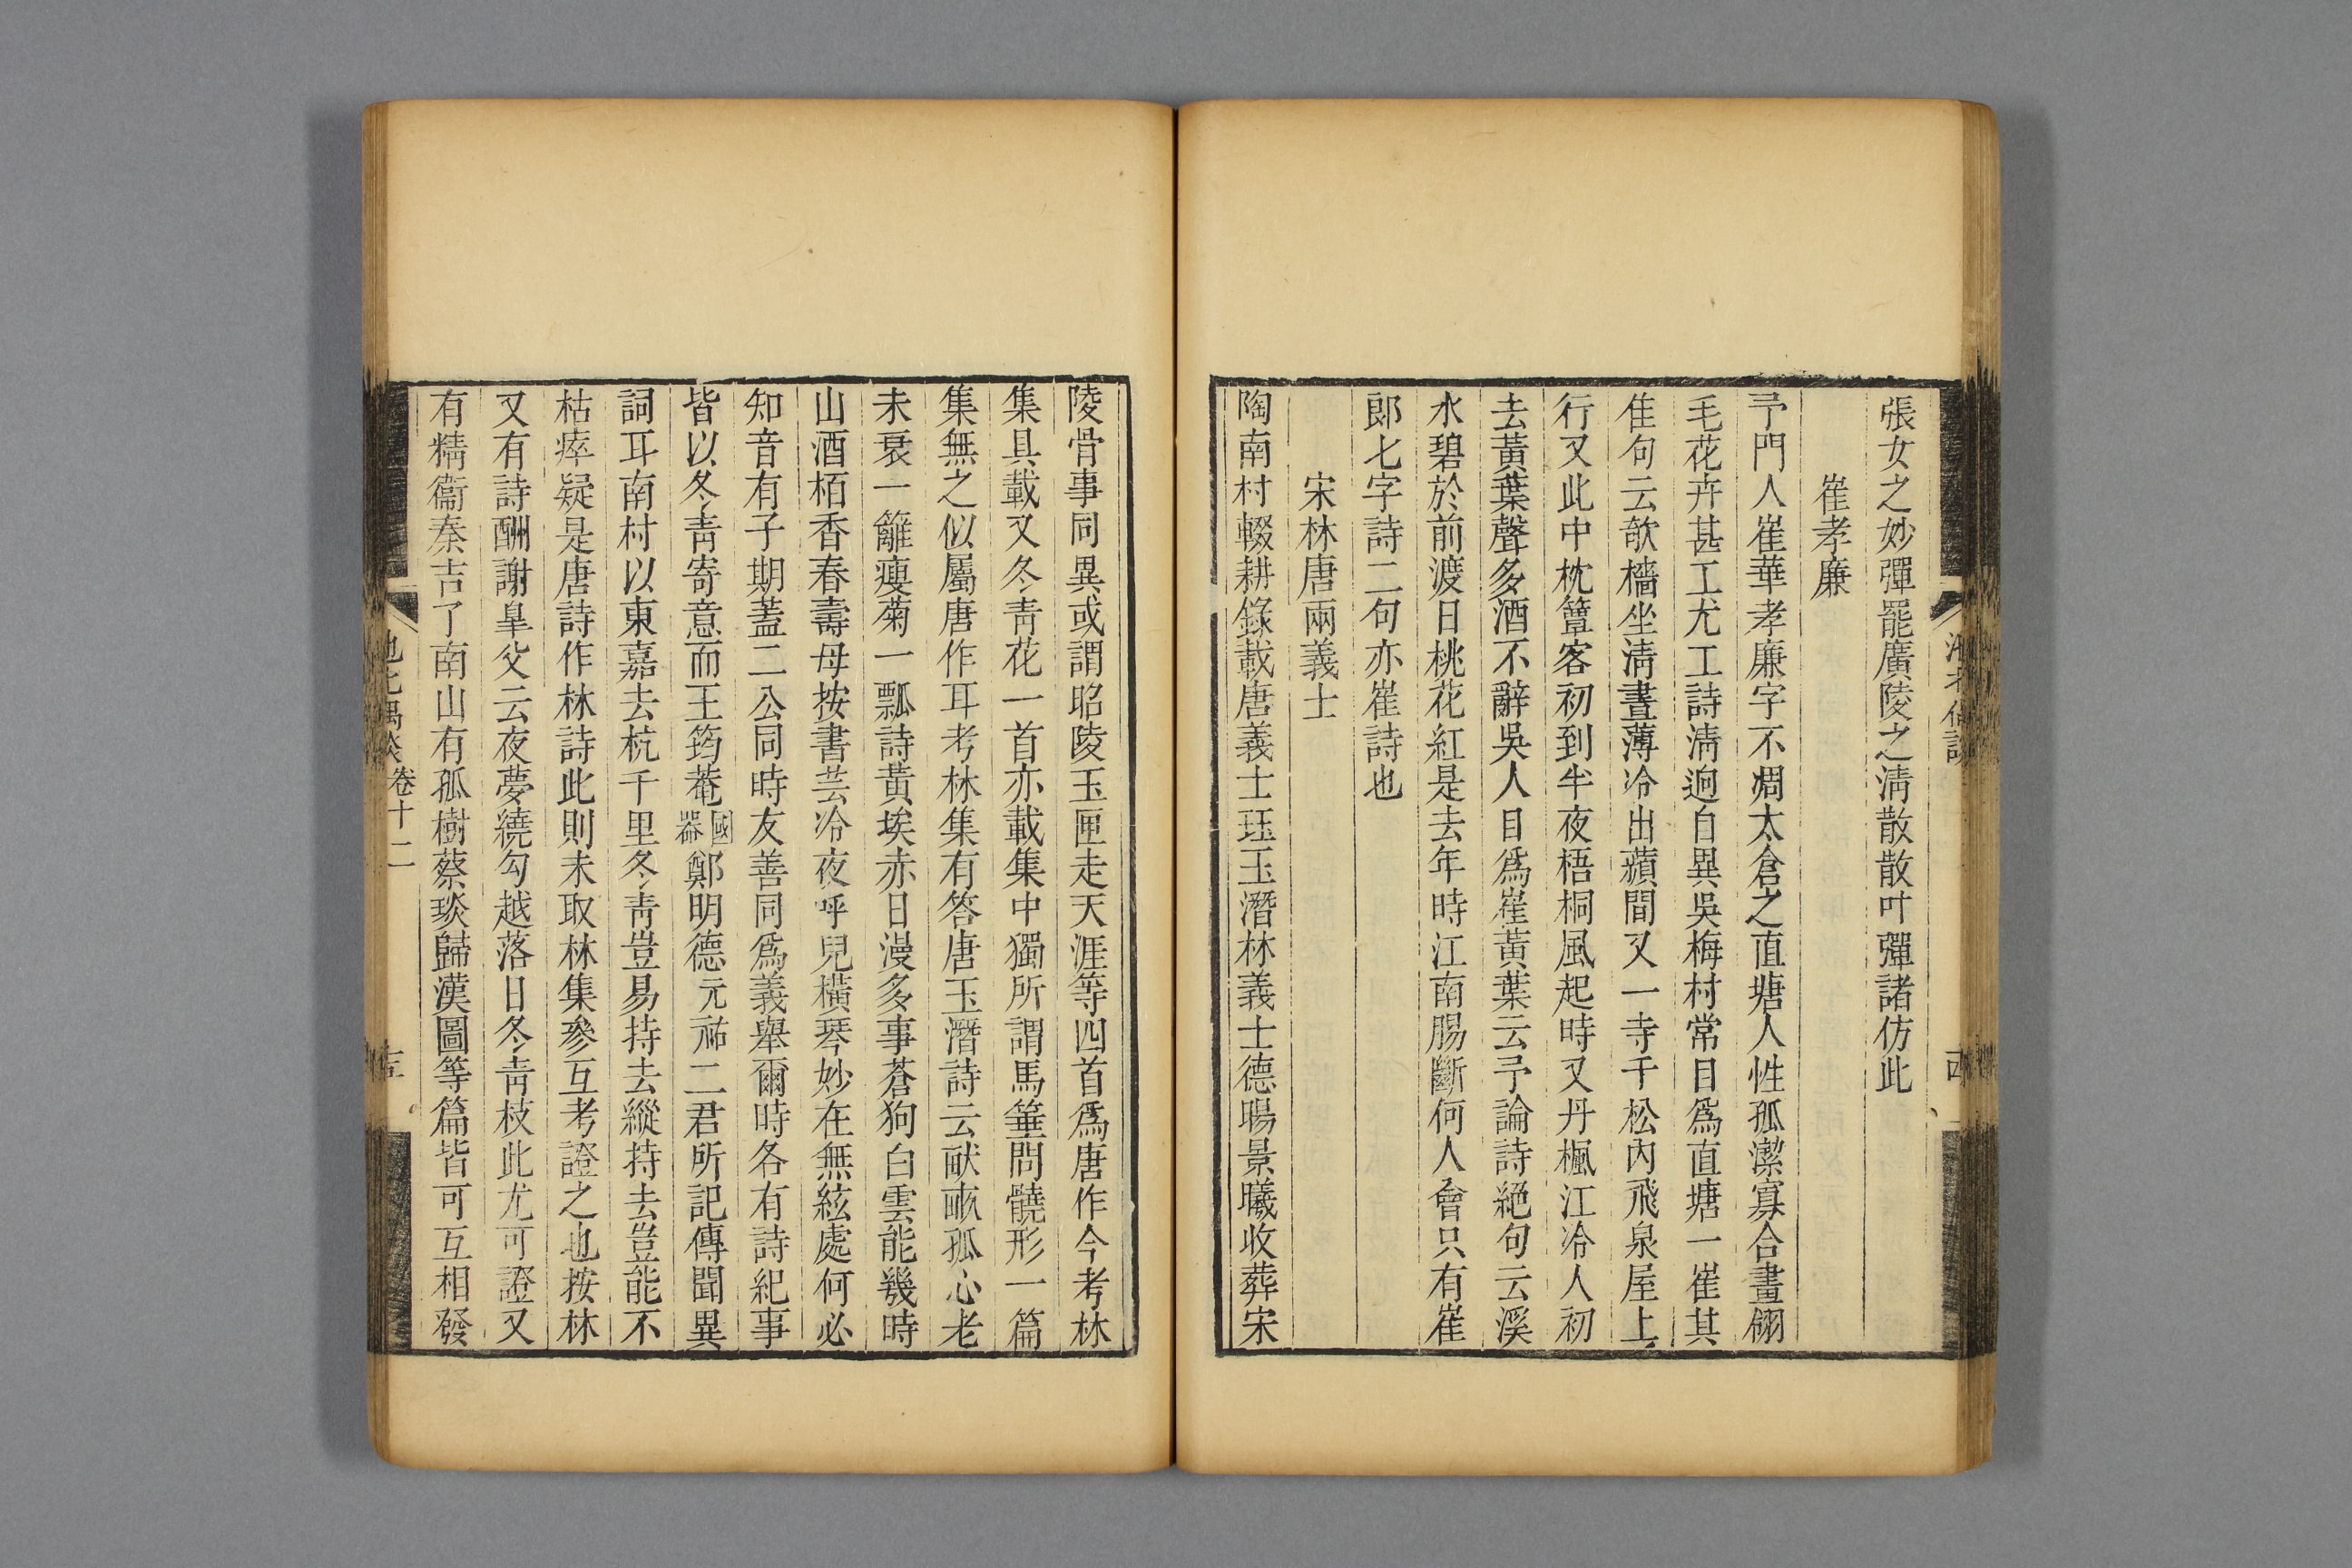 張女之妙彈罷廣陵之清散散叶彈諸仿此
崔孝廉
予門人崔華孝廉字不凋太倉之直塘人性孤潔寡合畫翎
毛花卉甚工尤工詩清逈自異吳梅村常目爲直塘一崔其
佳句云欹檣坐清晝薄冷出蘋間又一寺千松內飛泉屋上
行又此中枕簟客初到半夜梧桐風起時又丹楓江冷人初
去黃葉聲多酒不辭吳人目爲崔黃葉云予論詩絕句云溪
水碧於前渡日桃花紅是去年時江南腸斷何人會只有崔
郎七字詩二句亦崔詩也
宋林唐兩義士
陶南村輟耕錄載唐義士珏玉潛林義士德暘景曦收葬宋
陵骨事同異或謂昭陵玉匣走天涯等四首爲唐作今考林
集具載又冬青花一首亦載集中獨所謂馬箠問髐形一篇
集無之似屬唐作耳考林集有答唐玉潛詩云畎畝孤心老
未衰一籬瘦菊一瓢詩黃埃赤日漫多事蒼狗白雲能幾時
山酒栢香春壽母按書芸冷夜呼兒橫琴妙在無絃處何必
知音有子期蓋二公同時友善同爲義舉爾時各有詩紀事
皆以冬青寄意而王筠菴國器鄭明德元祐二君所記傳聞異
詞耳南村以東嘉去杭千里冬青豈易持去縱持去豈能不
枯瘁疑是唐詩作林詩此則未取林集參互考證之也按林
又有詩酬謝皐父云夜夢繞勾越落日冬青枝此尤可證又
有精衞秦吉了南山有孤樹蔡琰歸漢圖等篇皆可互相發
卷十二